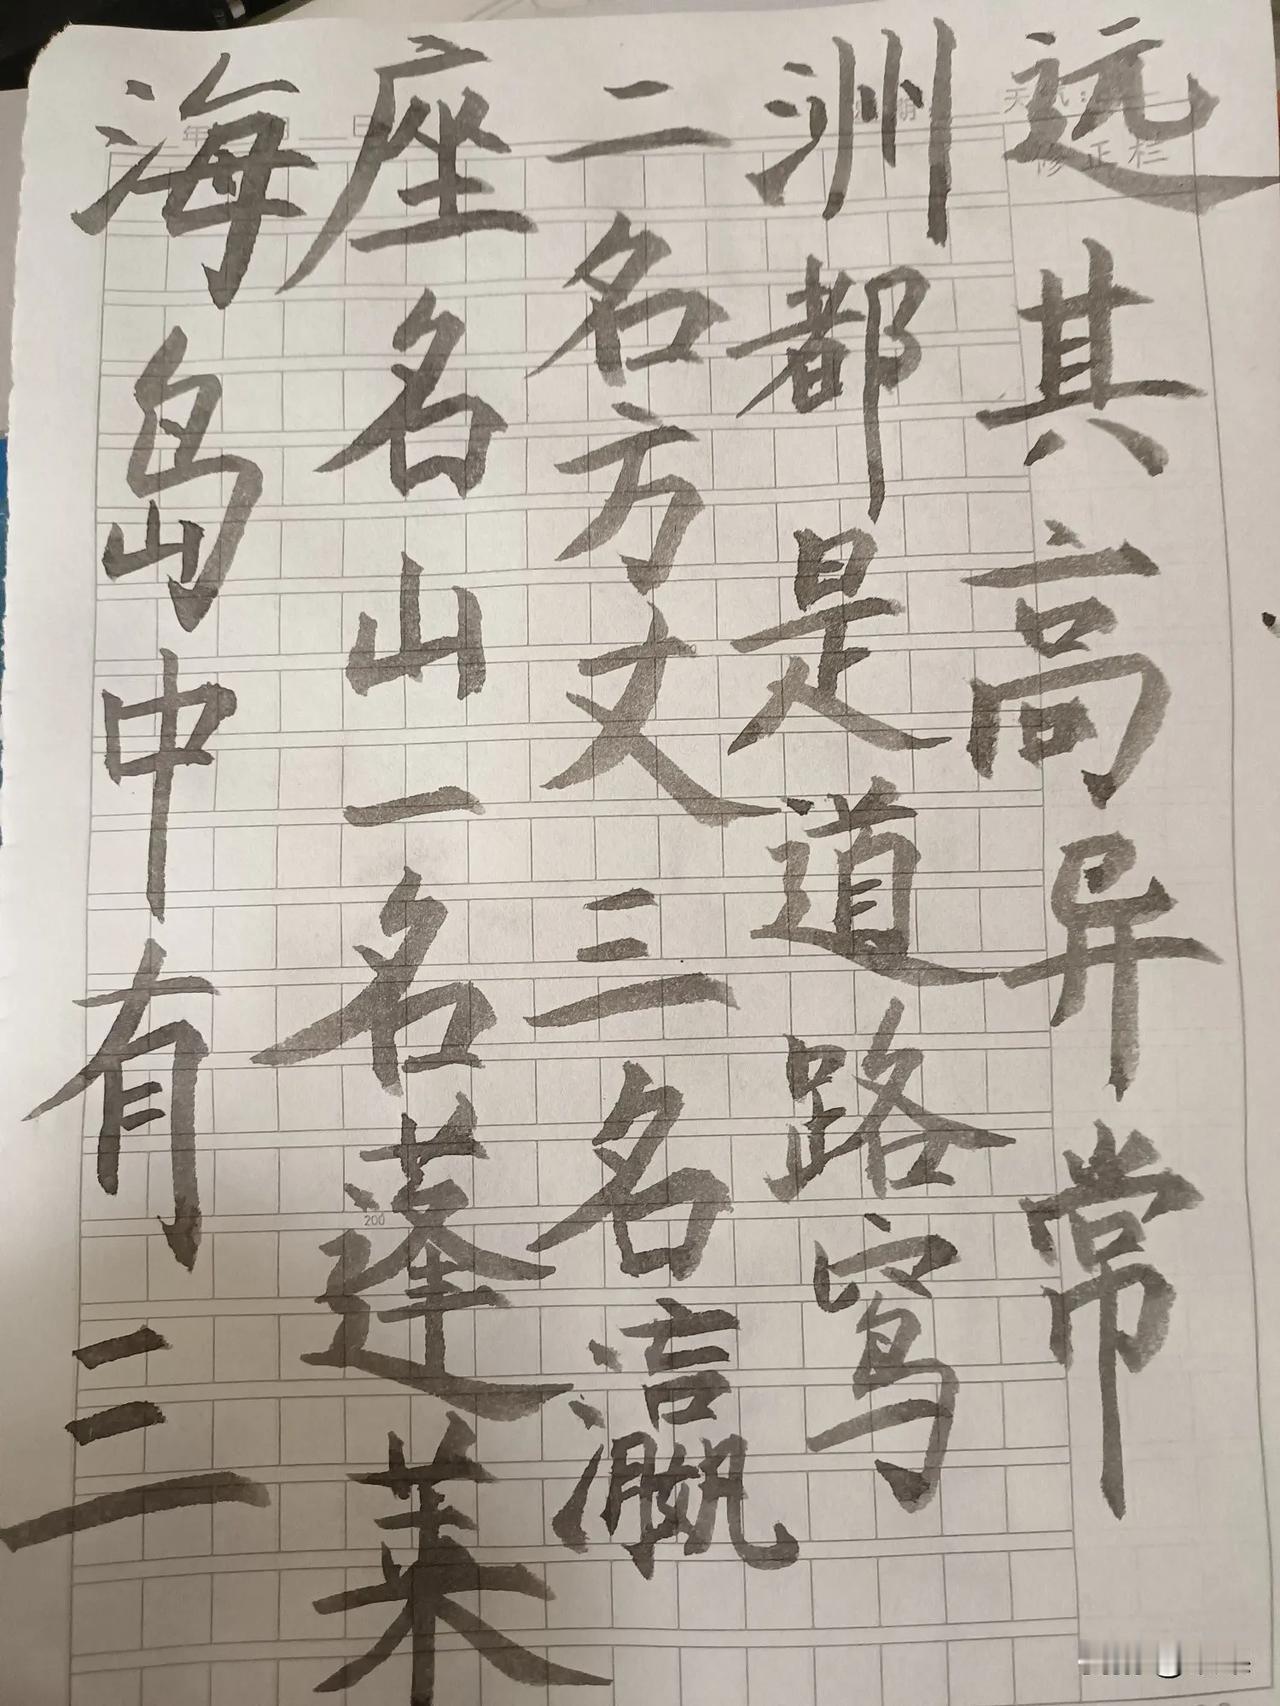 海岛中有三
座名山一名蓬莱
二名方丈三名瀛
洲都是道路窎
远其高异常
年 月 日
修正栏
100
200